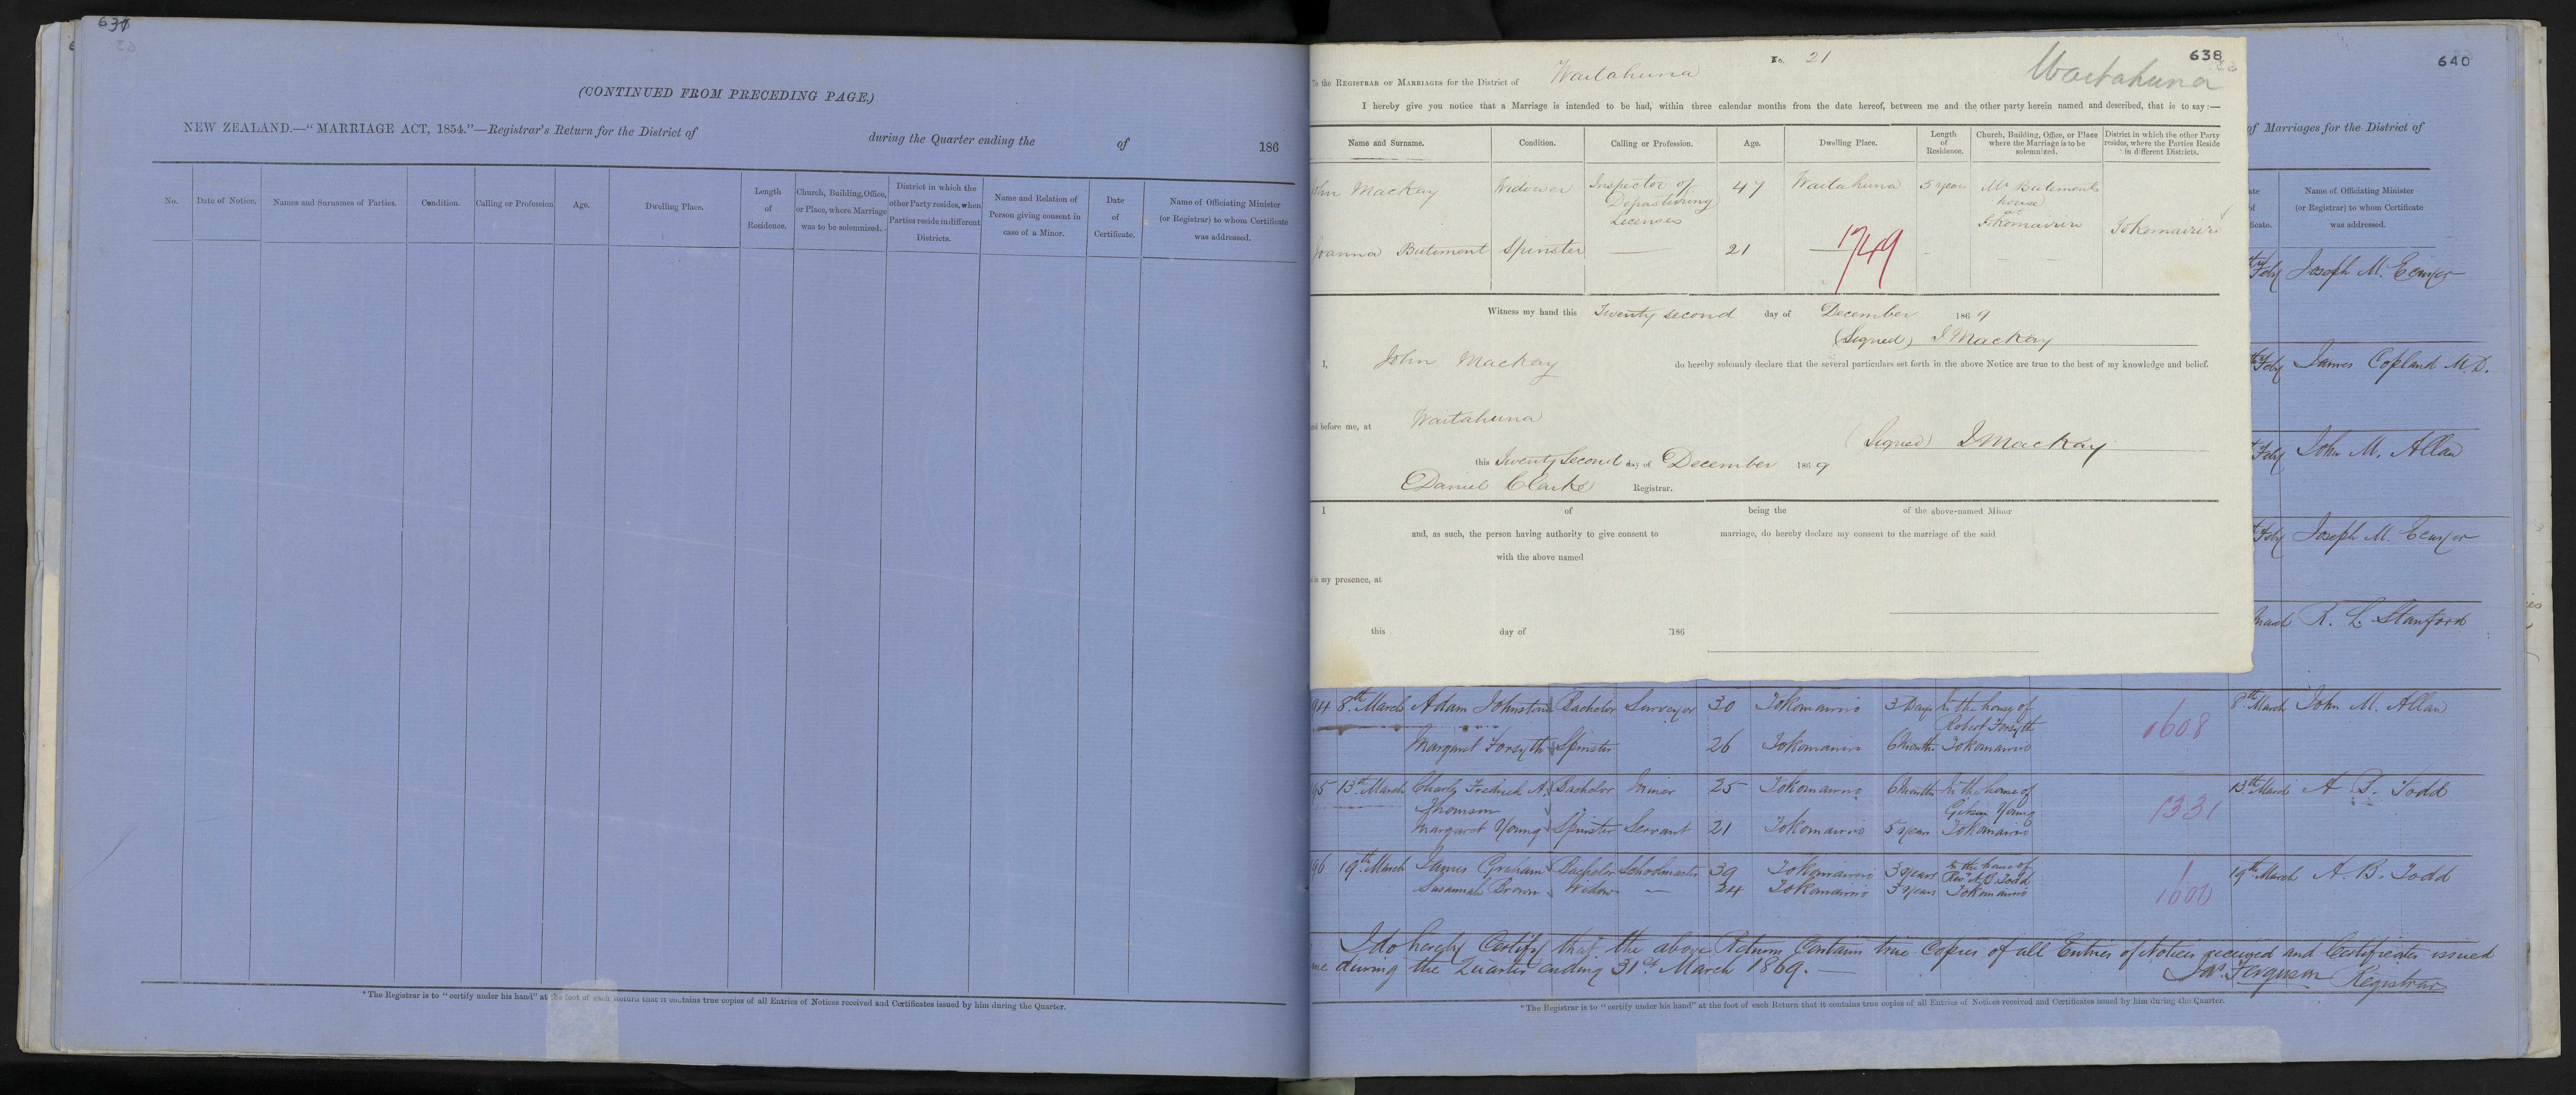 637
(CONTINUED FROM PRECEDING PAGE.)
NEW ZEALAND.—"MARRIAGE ACT, 1854."—Registrar's Return for the District of during the Quarter ending the of 186
No. Date of Notice. Names and Surnames of Parties. Condition. Calling or Profession Age. Dwelling Place. Length of Residence. Church, Building, Office, or Place, where Marriage was to be solemnized. District in which the other Party resides, when Parties reside in different Districts. Name and Relation of Person giving consent in case of a Minor. Date of Certificate. Name of Officiating Minister (or Registrar) to whom Certificate was addressed.
*The Registrar is to "certify under his hand" at the foot of each Return that it contains true copies of all Entries of Notices received and Certificates issued by him during the Quarter.
No. 21
638
Waitahuna
To the REGISTRAR OF MARRIAGES for the District of Waitahuna
I hereby give you notice that a Marriage is intended to be had, within three calendar months from the date hereof, between me and the other party herein named and described, that is to say:—
Name and Surname. Condition. Calling or Profession. Age. Dwelling Place. Length of Residence. Church, Building, Office, or Place where the Marriage is to be solemnized. District in which the other Party resides, where the Parties Reside in different Districts.
ohn Mackay Widower Inspector of Depasturing Licenses 47 Waitahuna 5 years Mr Butements house at Tokomairiro Tokomairiro
Joanna Butement Spinster — 21 —
1749
Witness my hand this Twenty second day of December 1869
(Signed) J Mackay
I, John Mackay do hereby solemnly declare that the several particulars set forth in the above Notice are true to the best of my knowledge and belief.
before me, at Waitahuna
(Signed) J Mackay
this Twenty Second day of December 1869
Daniel Clarke Registrar.
I of being the of the above-named Minor
and, as such, the person having authority to give consent to marriage, do hereby declare my consent to the marriage of the said
with the above named
in my presence, at
this day of 186
640
of Marriages for the District of
Name of Officiating Minister (or Registrar) to whom Certificate was addressed.
Feby Joseph M.
Feby James Copland M.D.
Feby John M. Allan
Feby Joseph M.
R. L. Stanford
94 8th March Adam Johnstone Bachelor Surveyor 30 Tokomairiro 3 Days In the house of Robert Forsyth 8th March John M. Allan
1608
Margaret Forsyth Spinster 26 Tokomairiro 6 Months Tokomairiro
95 13th March Charles Fredrick A. Thomson Bachelor Miner 25 Tokomairiro 6 Months In the house of Gibson Young 13th March A B. Todd
1331
Margaret Young Spinster Servant 21 Tokomairiro 5 years Tokomairiro
96 19th March James Graham Bachelor Schoolmaster 39 Tokomairiro 3 years In the house of Revd A.B. Todd 19th March A. B. Todd
Susannah Brown Widow — 24 Tokomairiro 3 years Tokomairiro
1600
I do hereby Certify that the above Return Contain true Copies of all Entries of Notices received and Certificates issued
me during the Quarter ending 31st March 1869.—
Jas. Ferguson Registrar
*The Registrar is to "certify under his hand" at the foot of each Return that it contains true copies of all Entries of Notices received and Certificates issued by him during the Quarter.